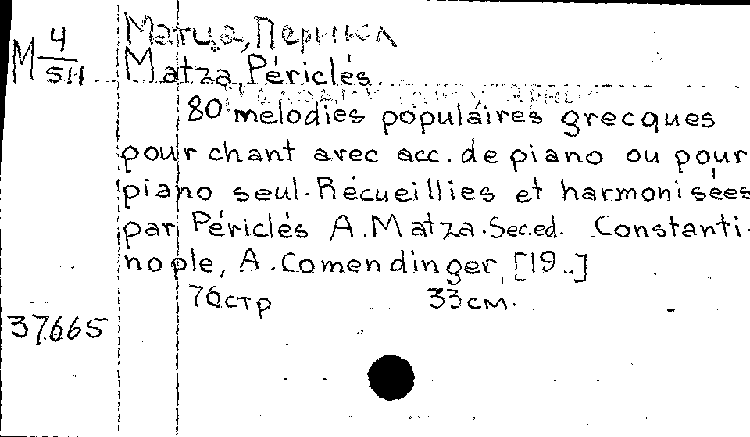 Матца, Перикл
M 4/511 Matza, Périclés.
80 melodies populaires grecques
pour chant avec acc. de piano ou pour
piano seul. Récueillies et harmonisées
par Périclés A. Matza. Sec. ed. Constanti-
nople, A. Comendinger, [19..]
76 стр 33 см.
37665